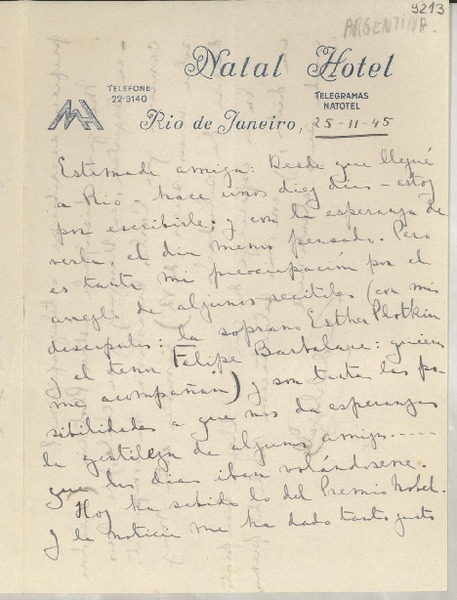 9213
ARGENTINA.
Natal Hotel
TELEFONE
22-3140
TELEGRAMAS
NATOTEL
Rio de Janeiro, 25-11-45
Estimada amiga: Desde que llegué
a Rio - hace unos diez dias - estoy
por escribirle; y con la esperanza de
verla, el dia menos pensado. Pero
es tanta mi preocupación por el
arreglo de algunos recitales (con mis
discípulos: la soprano Esther Plotkin
y al tenor Felipe : quienes
me acompañan) y son tantas las po-
sibilidades a que nos da esperanzas
la gentileza de algunos amigos.....
que los dias iban volándoseme.
Hoy he sabido lo del Premio Nobel.
y la noticia me ha dado tanto gusto